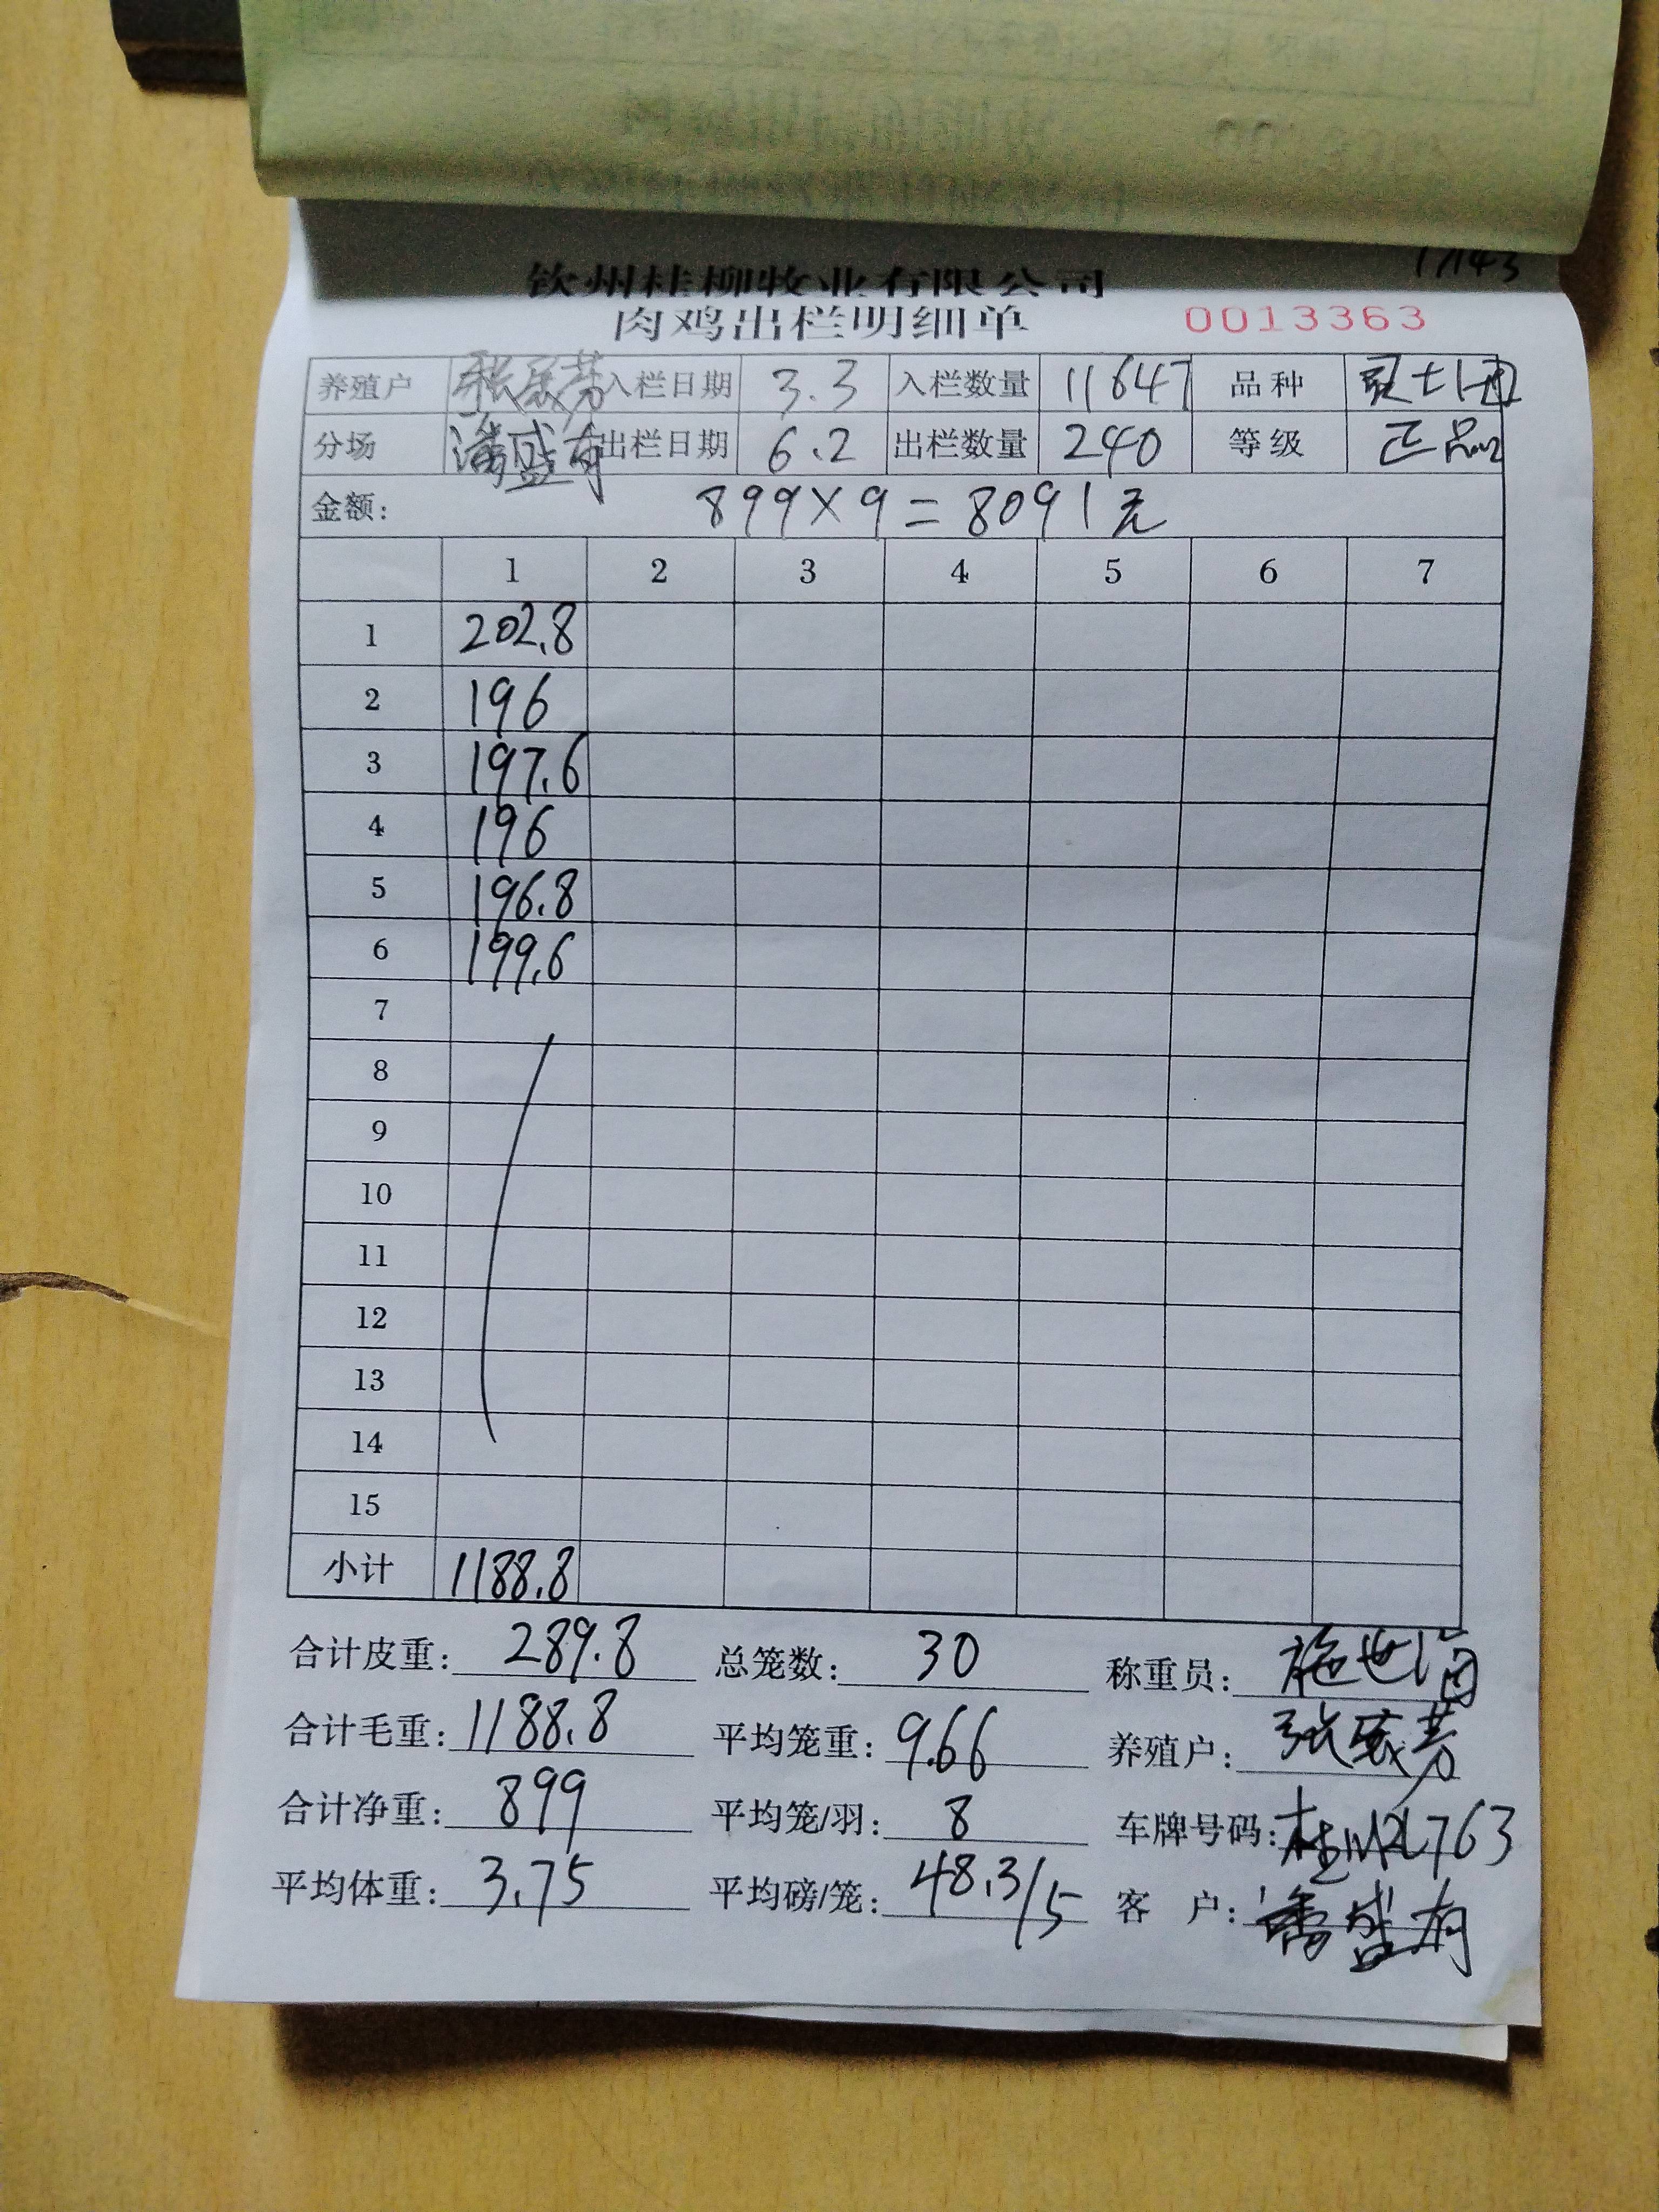 钦州桂柳牧业有限公司
肉鸡出栏明细单 0013363
养殖户 入栏日期 3.3 入栏数量 11647 品种
分场 潘盛有 出栏日期 6.2 出栏数量 240 等级 正品
金额: 899×9=8091元
1 2 3 4 5 6 7
1 202.8
2 196
3 197.6
4 196
5 196.8
6 199.6
7
8
9
10
11
12
13
14
15
小计 1188.8
合计皮重: 289.8 总笼数: 30 称重员:
合计毛重: 1188.8 平均笼重: 9.66 养殖户:
合计净重: 899 平均笼/羽: 8 车牌号码:
平均体重: 3.75 平均磅/笼: 48.3/5 客户: 潘盛有